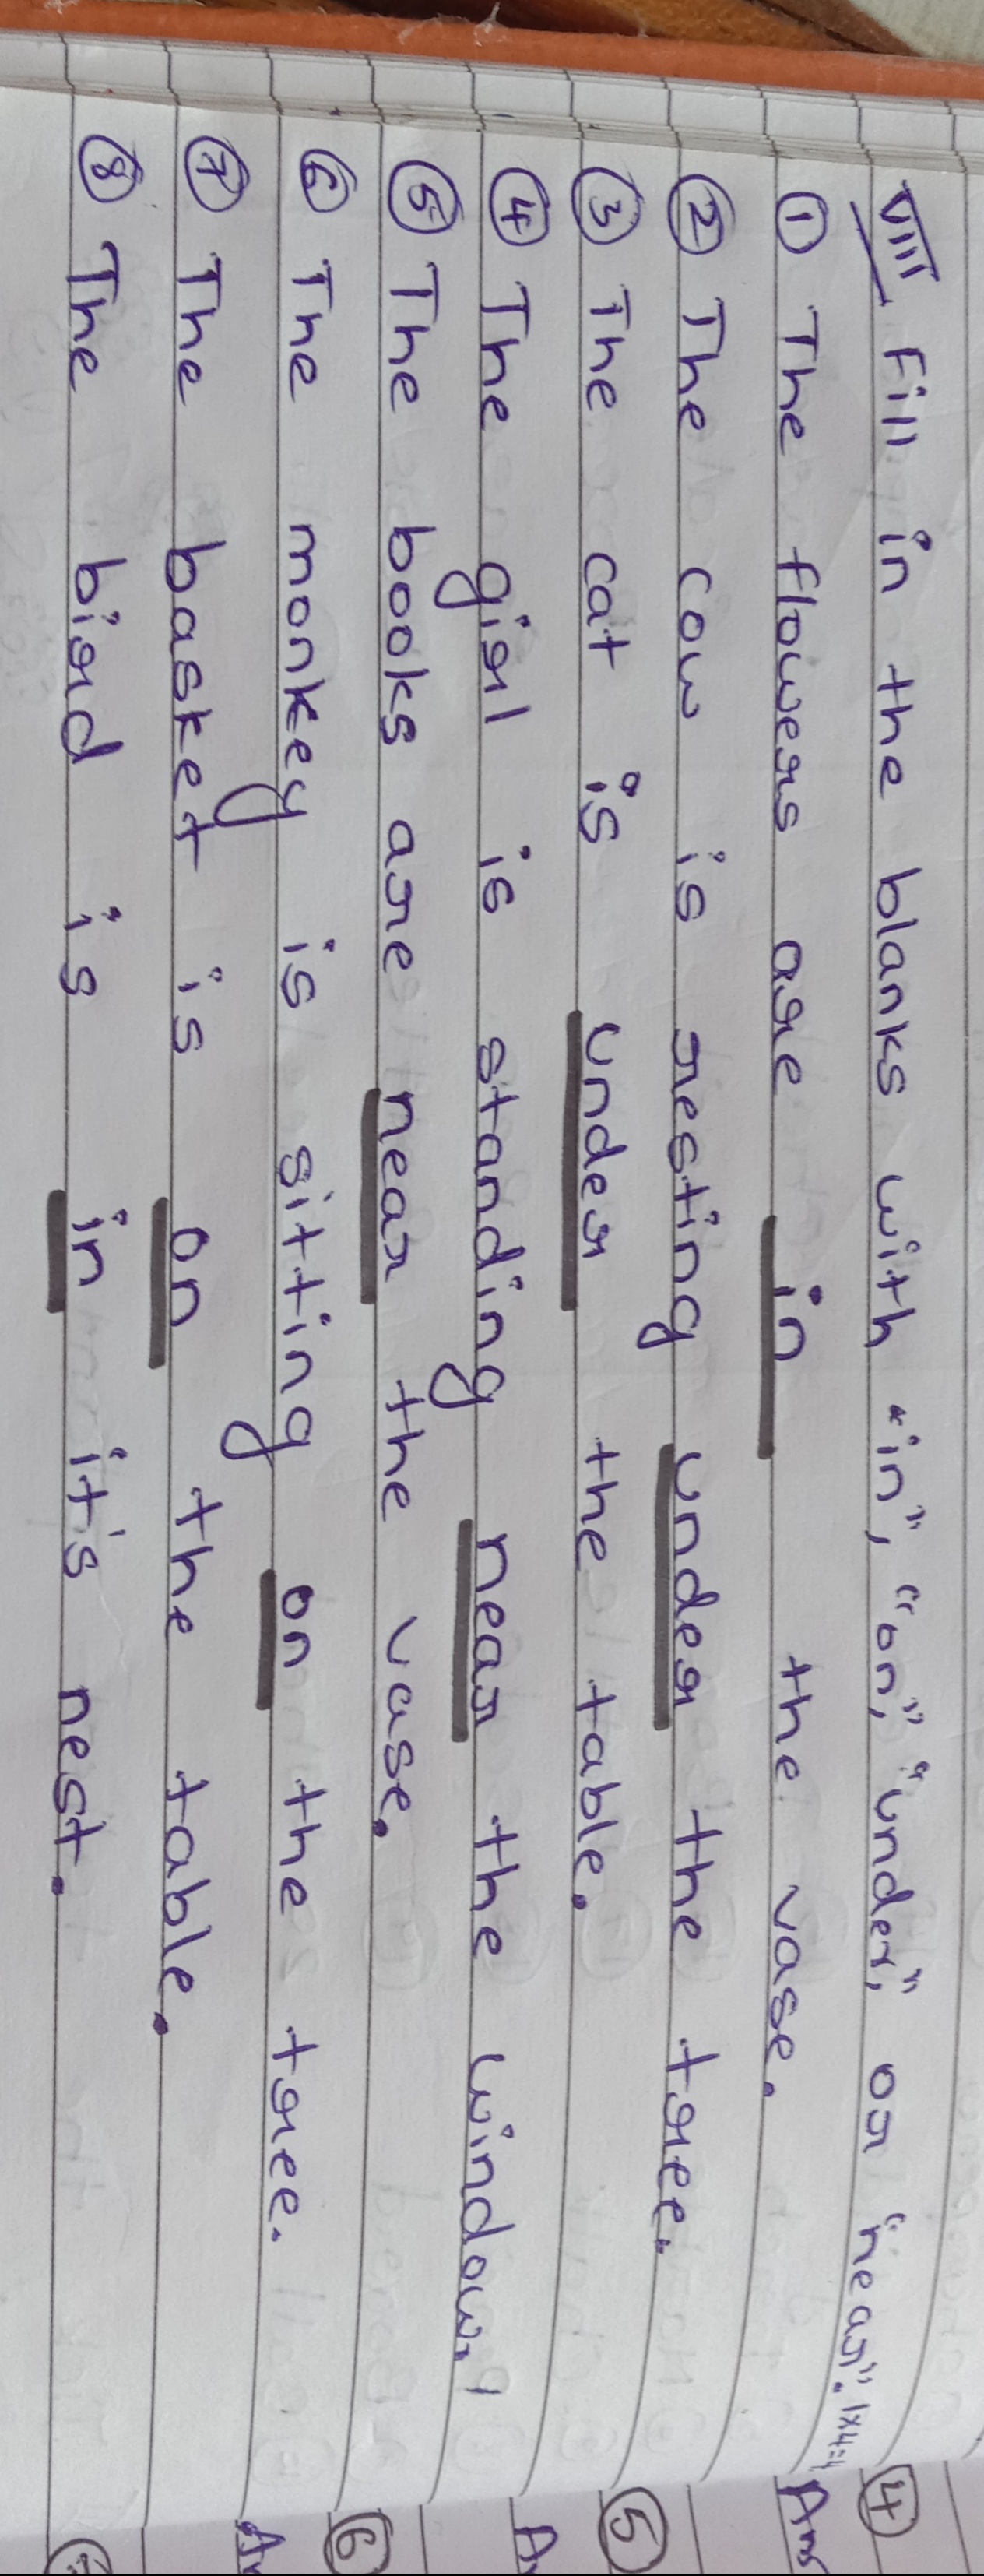 VIII Fill in the blanks with "in", "on", "under", or "near". 1x4=4
① The flowers are in the vase.
② The cow is resting under the tree.
③ The cat is under the table.
④ The girl is standing near the window.
⑤ The books are near the vase.
⑥ The monkey is sitting on the tree.
⑦ The basket is on the table.
⑧ The bird is in it's nest.
④
Ans
⑤
⑥